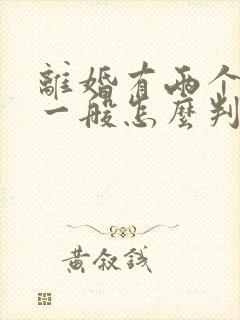 離婚有兩个
一般怎麼判
黃叙錢